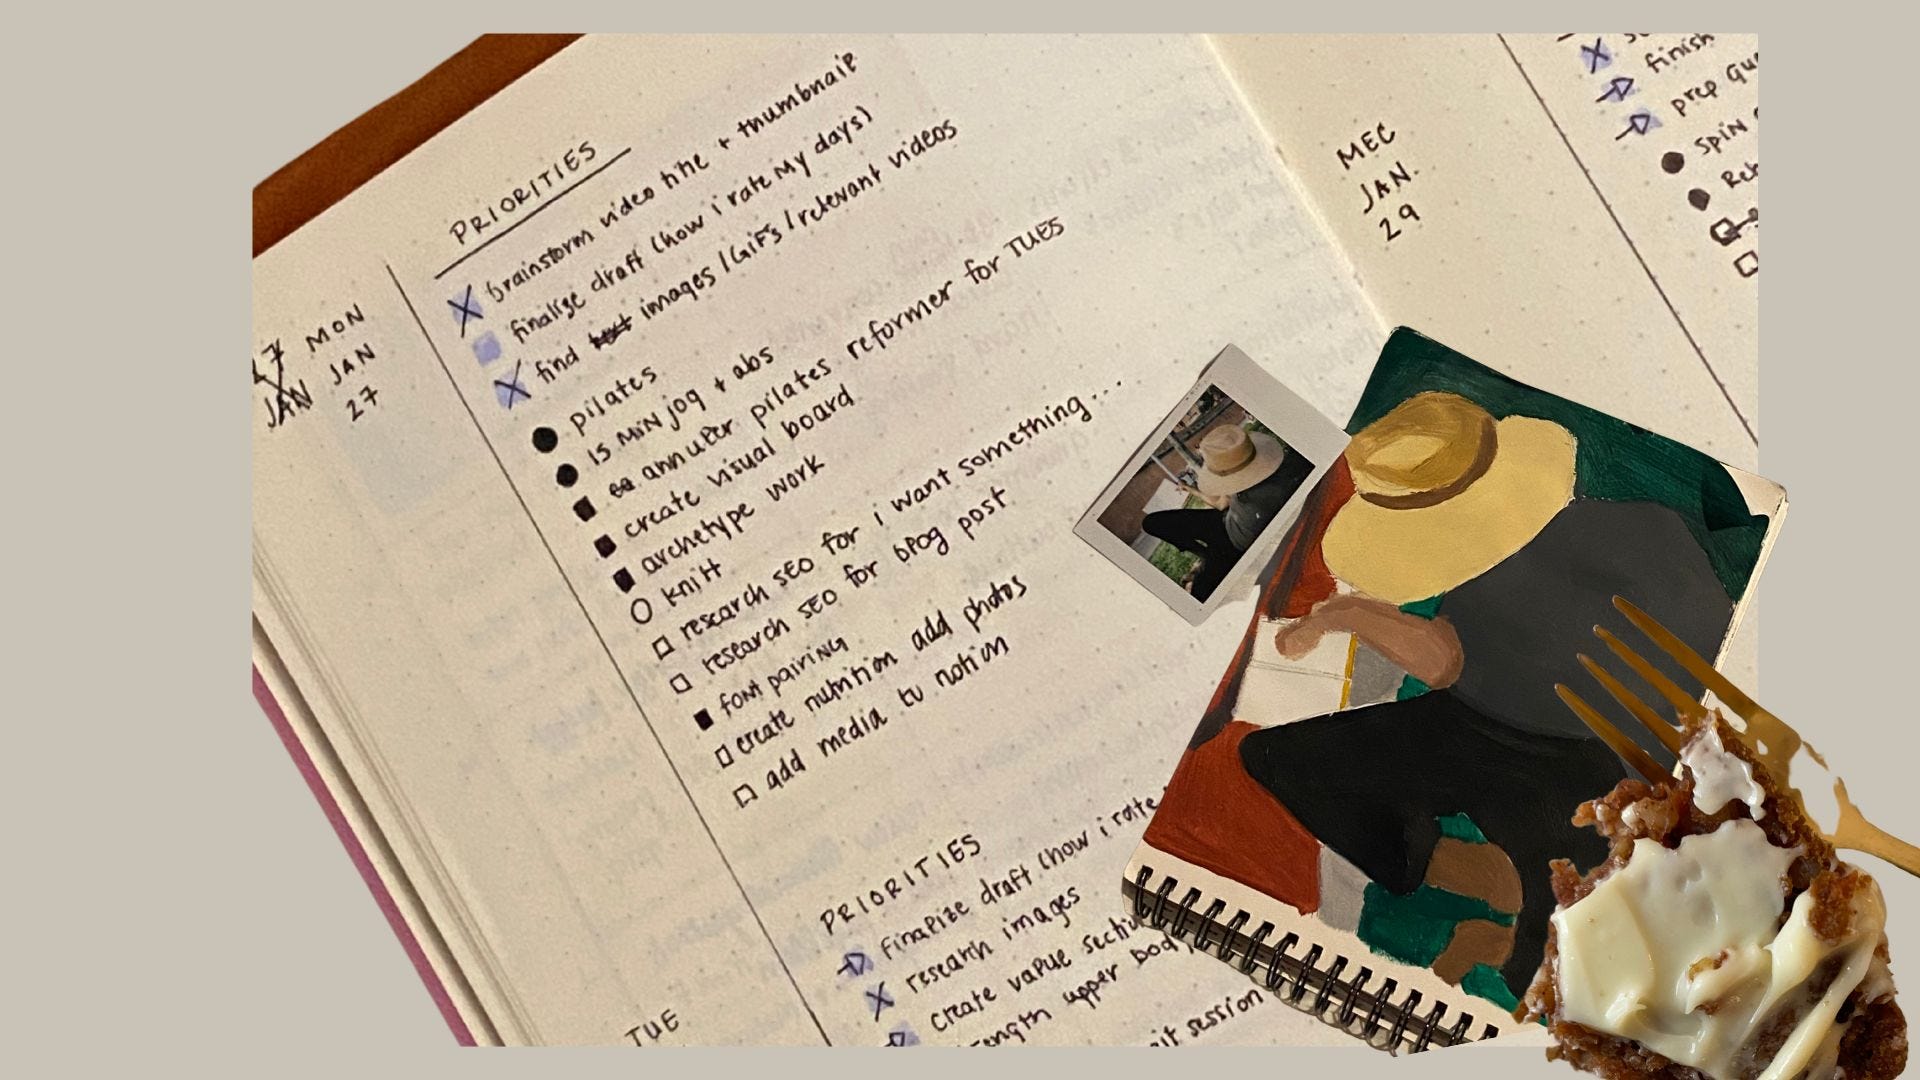 PRIORITIES
brainstorm video title + thumbnail
finalize draft (how i rate my days)
find text images /GIFs /relevant videos
17 MON
JAN JAN
27
pilates
15 MIN jog + abs
annuler pilates reformer for TUES
create visual board
archetype work
knitt
research SEO for i want something...
research SEO for blog post
font pairing
create nutrition add photos
add media to notion
PRIORITIES
finalize draft (how i rate
research images
create value section
upper body
session
TUE
MEC
JAN.
29
finish
prep
spin